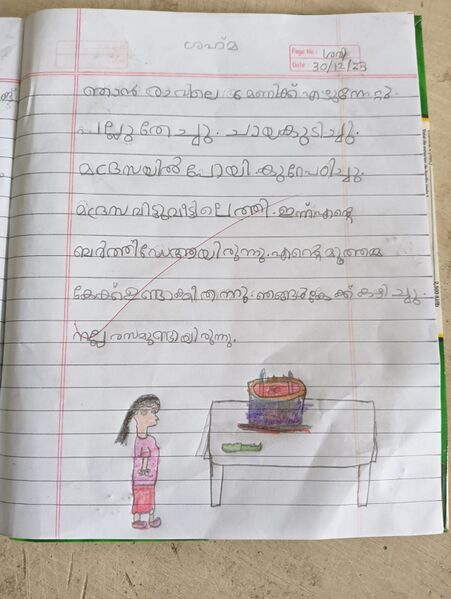 ശഹ്‌മ
Page No: ശനി
Date: 30/12/23
ഞാൻ രാവിലെ 6 മണിക്ക് എഴുന്നേറ്റു.
പല്ലുതേച്ചു. ചായകുടിച്ചു.
മദ്രസയിൽ പോയി. കുറേപഠിച്ചു.
മദ്രസ വിട്ടുവീട്ടിലെത്തി. ഇന്ന്എന്റെ
ബർത്ത്ഡേആയിരുന്നു. എന്റെ മുത്തമ്മ
കേക്ക്ഉണ്ടാക്കിതന്നു. ഞങ്ങൾകേക്ക് കഴിച്ചു.
നല്ല രസമുണ്ടായിരുന്നു.